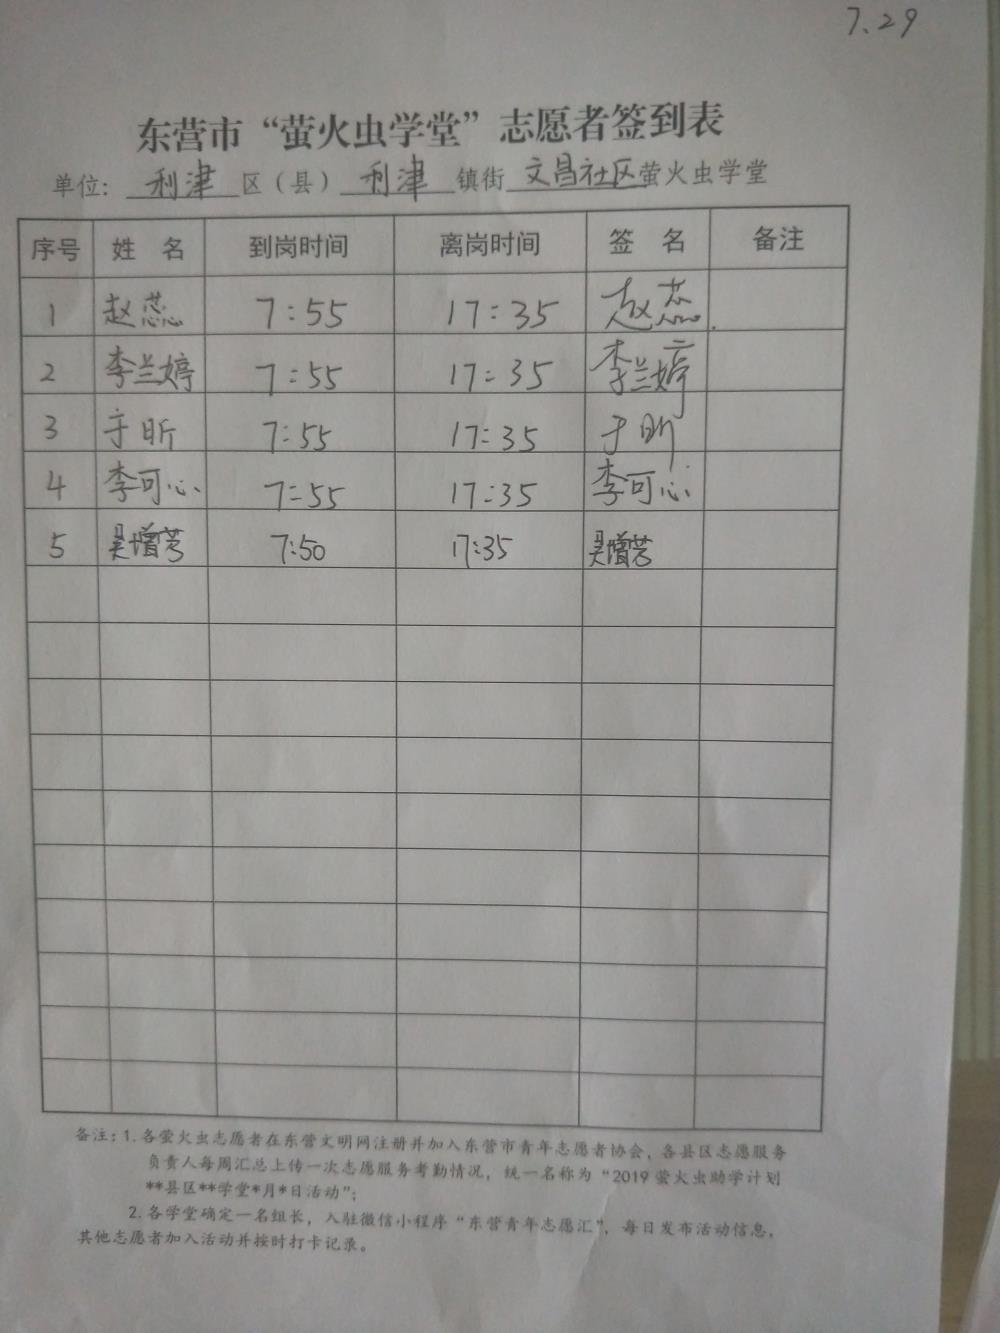 7.29
东营市“萤火虫学堂”志愿者签到表
单位: 利津 区(县) 利津 镇街 文昌社区萤火虫学堂
序号 姓 名 到岗时间 离岗时间 签 名 备注
1 赵蕊 7:55 17:35 赵蕊
2 李兰婷 7:55 17:35 李兰婷
3 于昕 7:55 17:35 于昕
4 李可心 7:55 17:35 李可心
5 吴增芳 7:50 17:35 吴增芳
备注:1.各萤火虫志愿者在东营文明网注册并加入东营市青年志愿者协会,各县区志愿服务
负责人每周汇总上传一次志愿服务考勤情况,统一名称为“2019萤火虫助学计划
**县区**学堂*月*日活动”;
2.各学堂确定一名组长,入驻微信小程序“东营青年志愿汇”,每日发布活动信息,
其他志愿者加入活动并按时打卡记录。